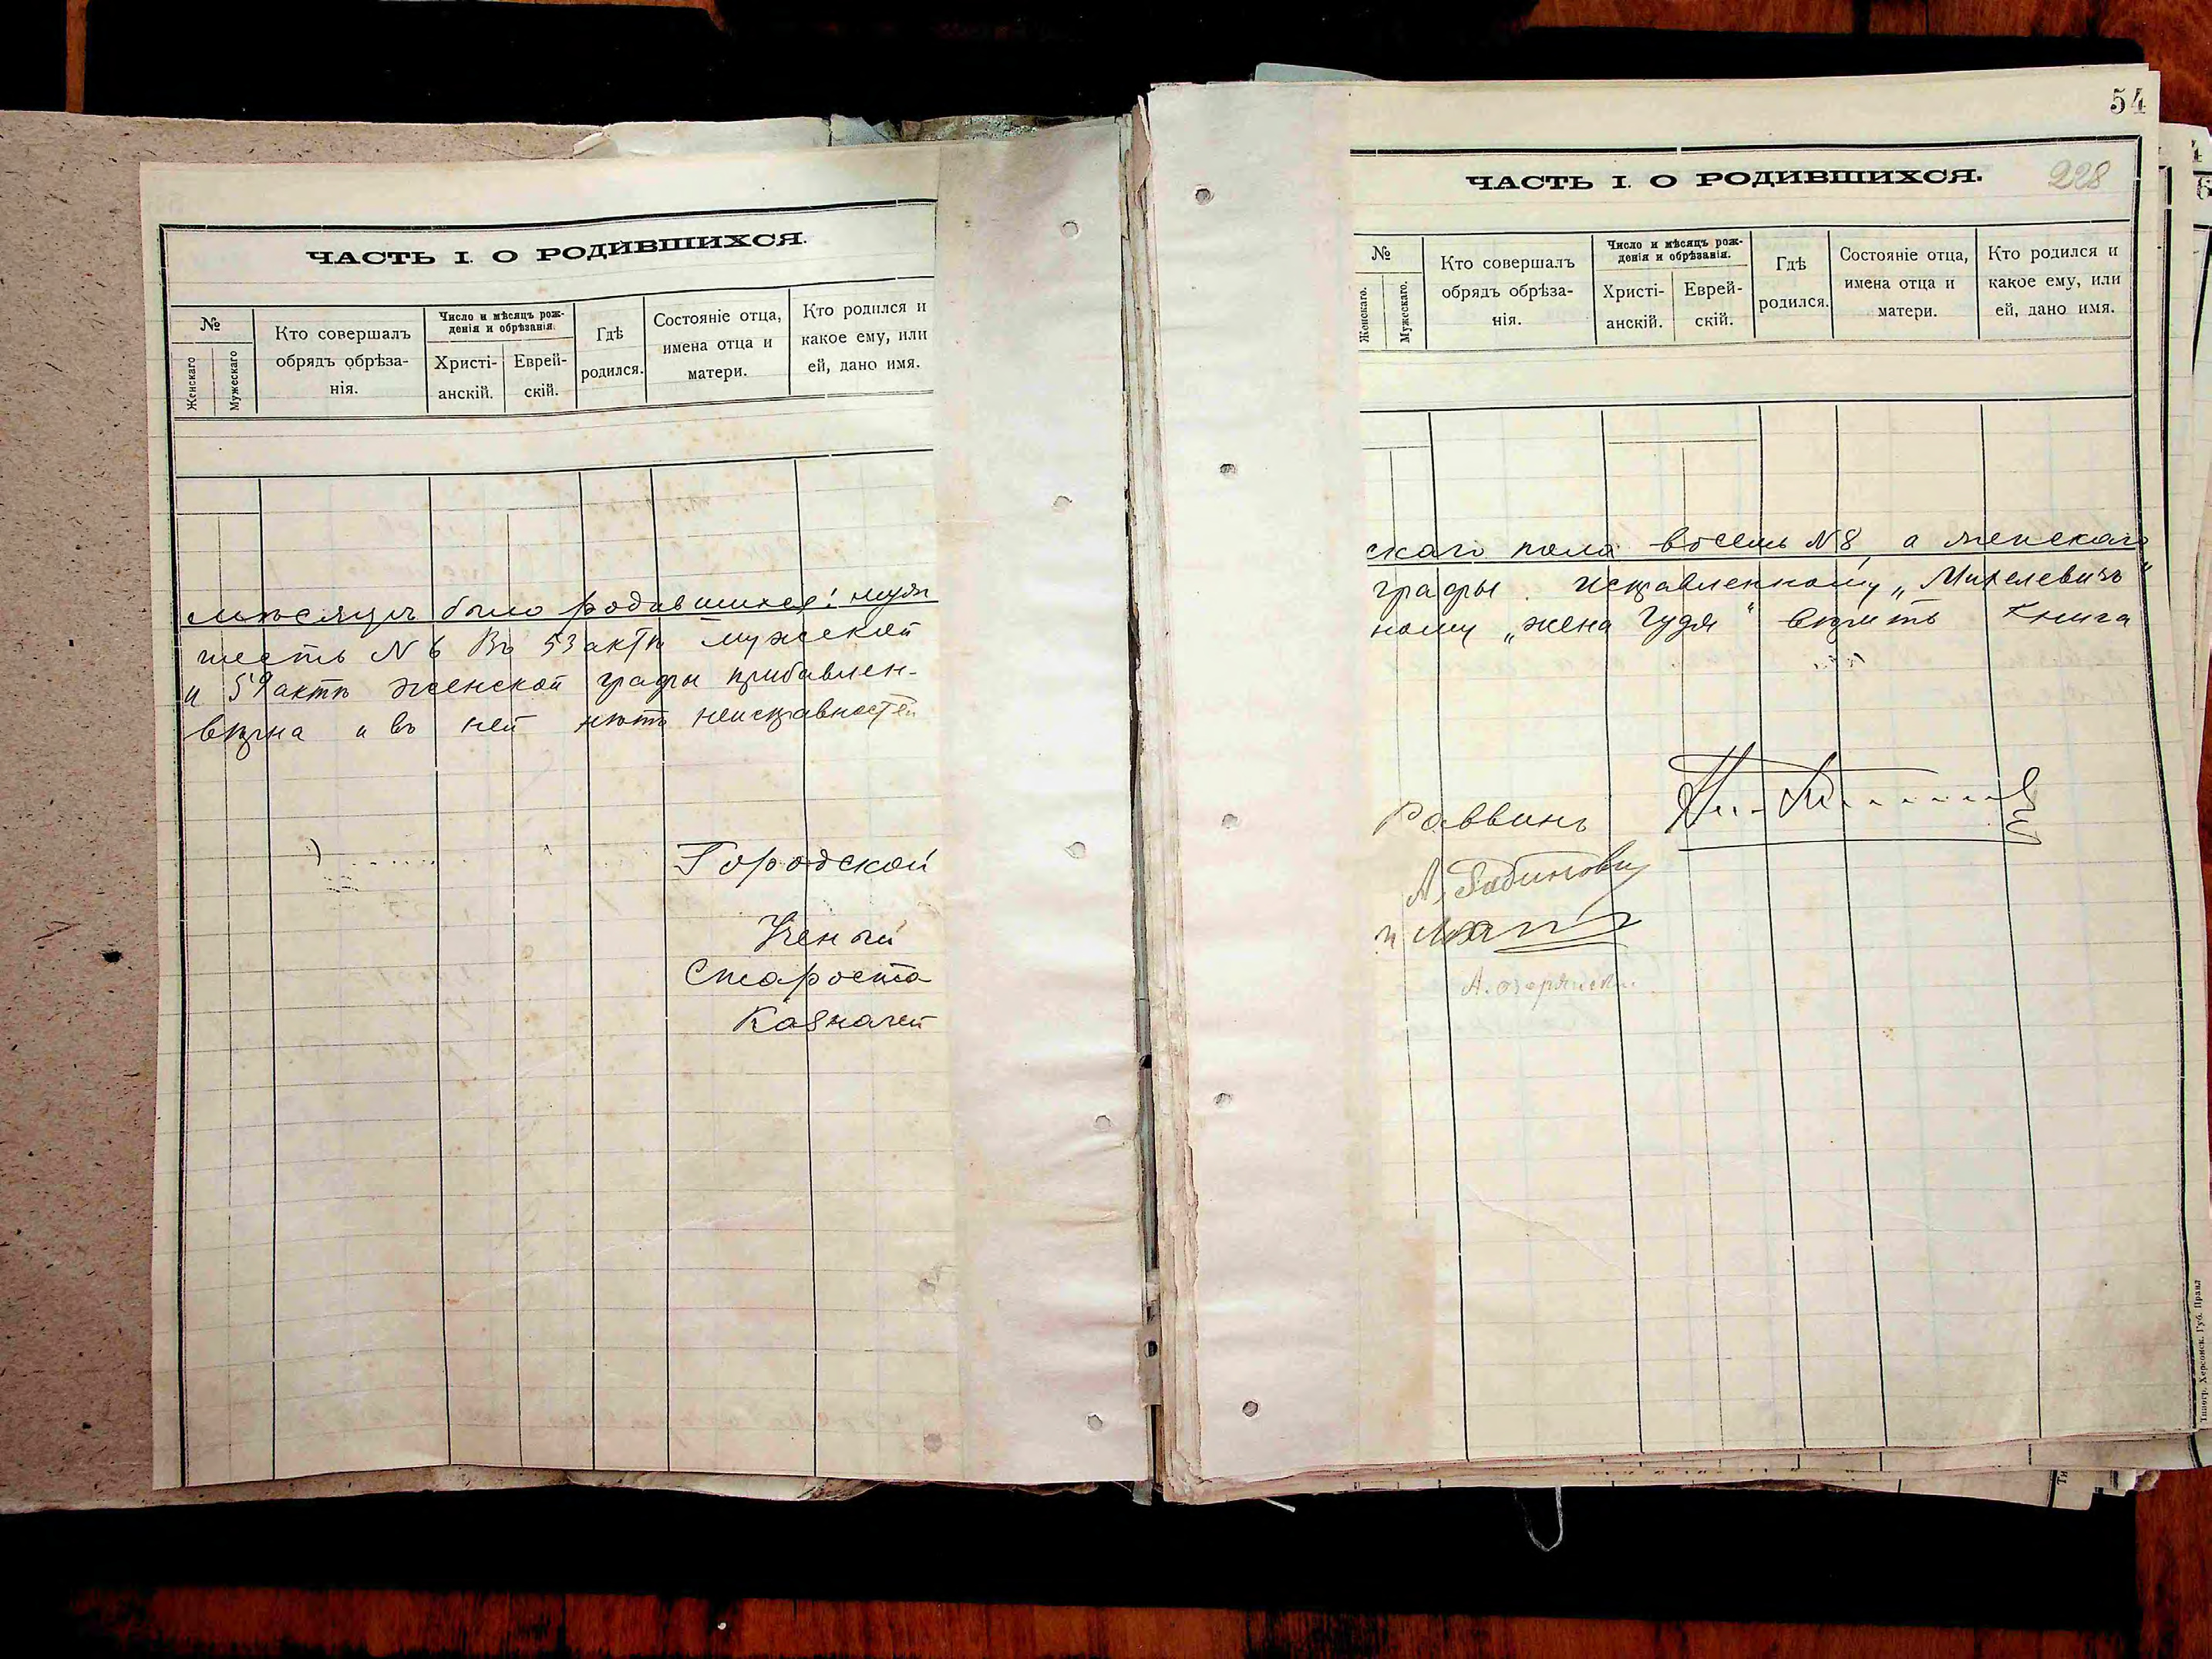 ЧАСТЬ I. О РОДИВШИХСЯ.
№
Женскаго
Мужескаго
Кто совершалъ
обрядъ обрѣза-
нія.
Число и мѣсяцъ рож-
денія и обрѣзанія.
Христі-
анскій.
Еврей-
скій.
Гдѣ
родился.
Состояніе отца,
имена отца и
матери.
Кто родился и
какое ему, или
ей, дано имя.
мѣсяцъ было родившихся: муже
шесть N 6 Въ 53 актѣ мужской
и 59 актѣ женской графы прибавлен-
вѣрна и въ ней нѣтъ неисправностей
Городской
Ученый
Староста
Казначей
54
ЧАСТЬ I. О РОДИВШИХСЯ.
228
№
Женскаго.
Мужескаго.
Кто совершалъ
обрядъ обрѣза-
нія.
Число и мѣсяцъ рож-
денія и обрѣзанія.
Христі-
анскій.
Еврей-
скій.
Гдѣ
родился.
Состояніе отца,
имена отца и
матери.
Кто родился и
какое ему, или
ей, дано имя.
скаго пола восемь N 8, а женскаго
графы исправленному „Михелевичъ"
ному „жена Гудя" вѣрить Книга
Раввинъ
А. Рабинович
Типогр. Херсонск. Губ. Правл